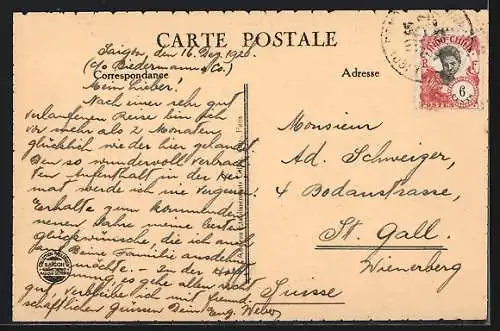 CARTE POSTALE
Correspondance
Adresse
Saigon, den 16. Dez. 1920.
(c/o Biedermann & Co.)
Mein Lieber!
Nach einer sehr gut
verlaufenen Reise bin ich
vor mehr als 2 Monaten
glücklich wieder hier gelandet.
Den so wundervoll verbrach
ten Aufenthalt in der Hei
mat werde ich nie vergessen.
Erhalte zum kommenden
neuen Jahre meine besten
Glückwünsche, die ich auch
Deine Familie ausdehn
möchte. - In der Hoff
nung es gehe allen recht
gut, verbleibe ich mit freund
schaftlichen Grüssen Dein Eug. Weber
Monsieur
Ad. Schweizer,
4 Bodanstrasse,
St. Gall.
Wienerberg
Suisse
INDO-CHINE
R F
6
POSTES
SAIGON